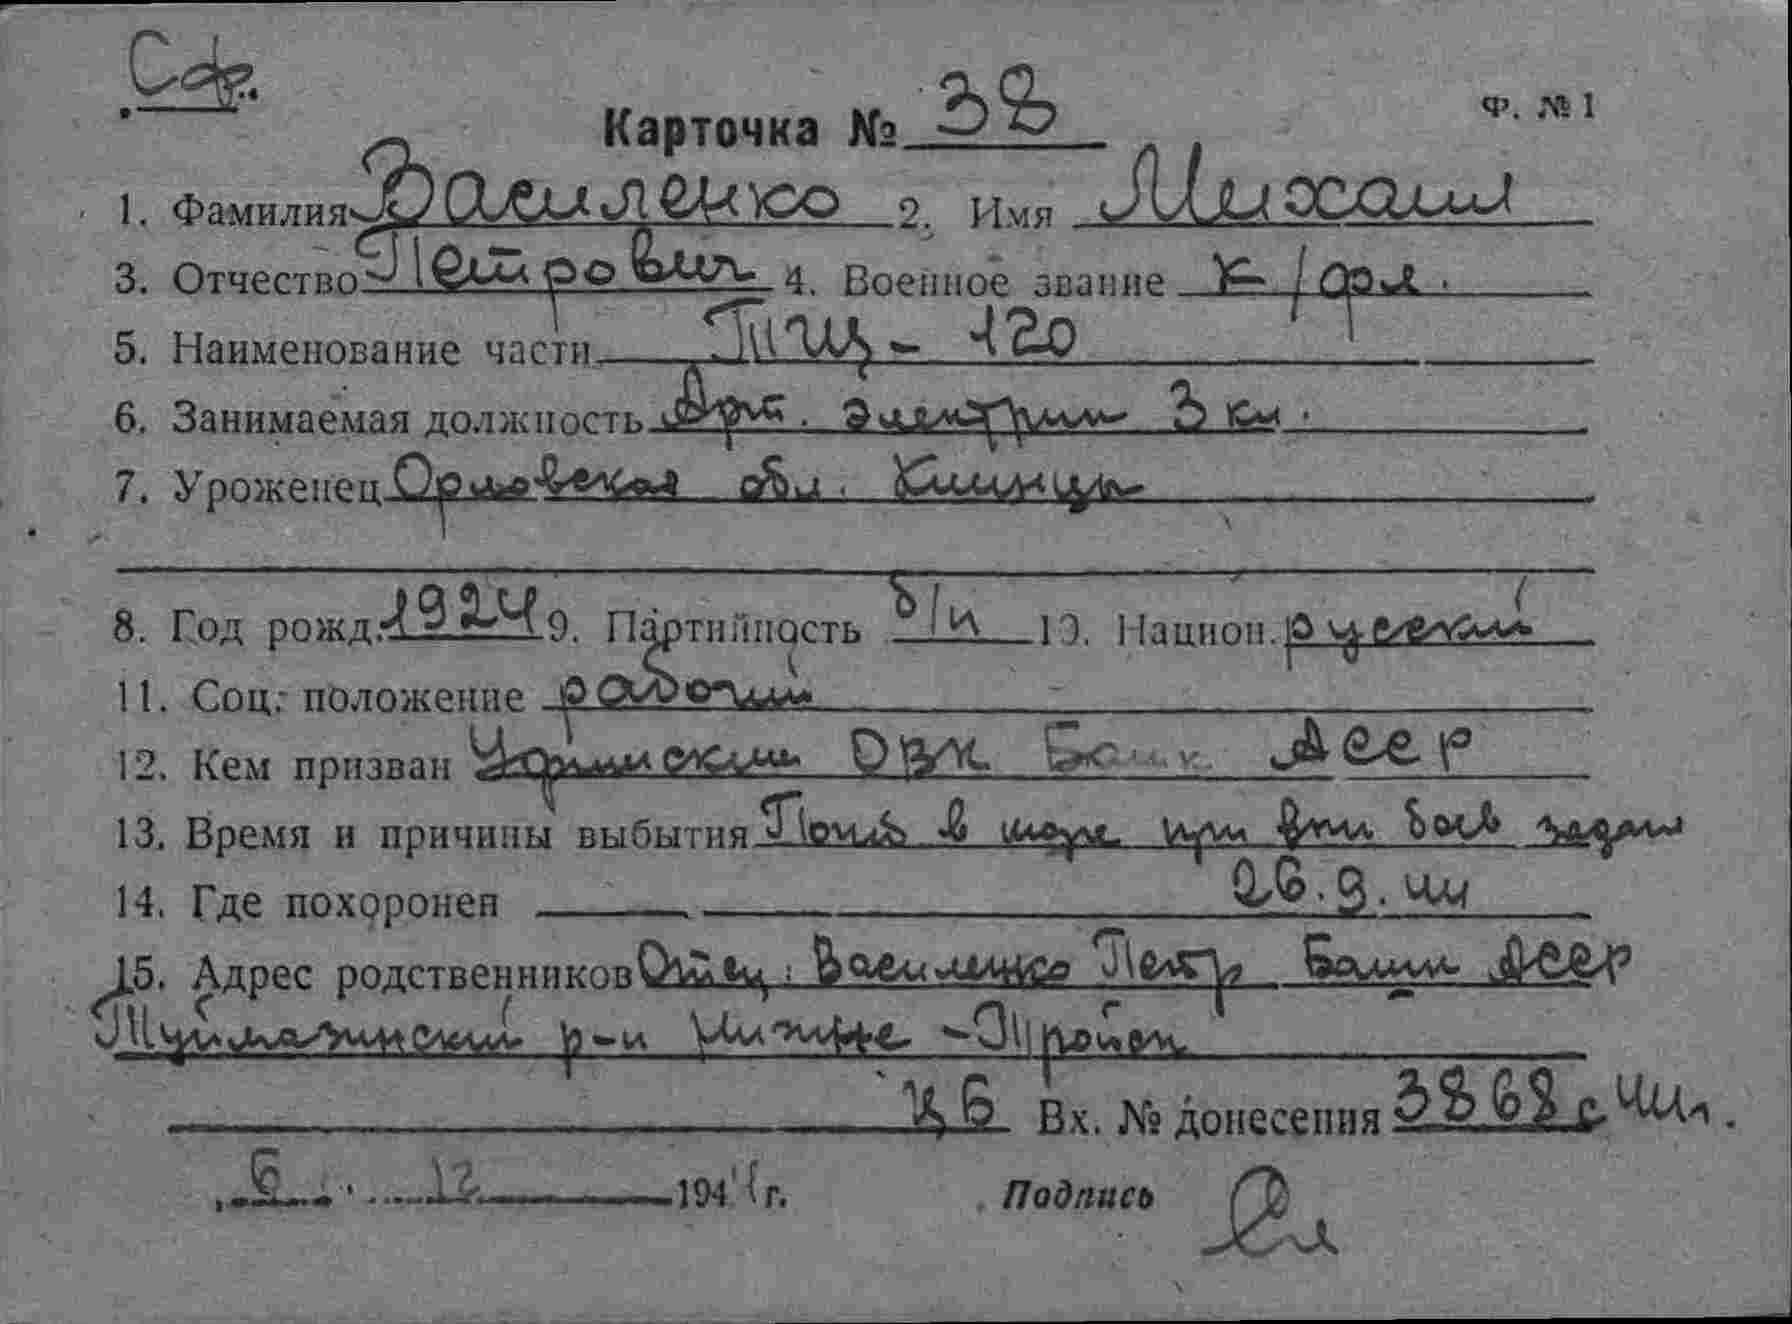 Сф.
Карточка № 38
Ф. № 1
1. Фамилия Василенко 2. Имя Михаил
3. Отчество Петрович 4. Военное звание к/фл.
5. Наименование части ТЩ - 120
6. Занимаемая должность Арт. электрик 3 кл.
7. Уроженец Орловская обл. Клинцы
8. Год рожд. 1924 9. Партийность б/п 10. Национ. русский
11. Соц. положение рабочий
12. Кем призван Уфимским ОВК Баш. АССР
13. Время и причины выбытия Погиб в море при вып боев задан
14. Где похоронен 26.9.44
15. Адрес родственников Отец: Василенко Петр Башк АССР
Туймазинский р-н Нижне-Тройск
ЦБ Вх. № донесения 3868с 44г.
6 12 1944 г. Подпись